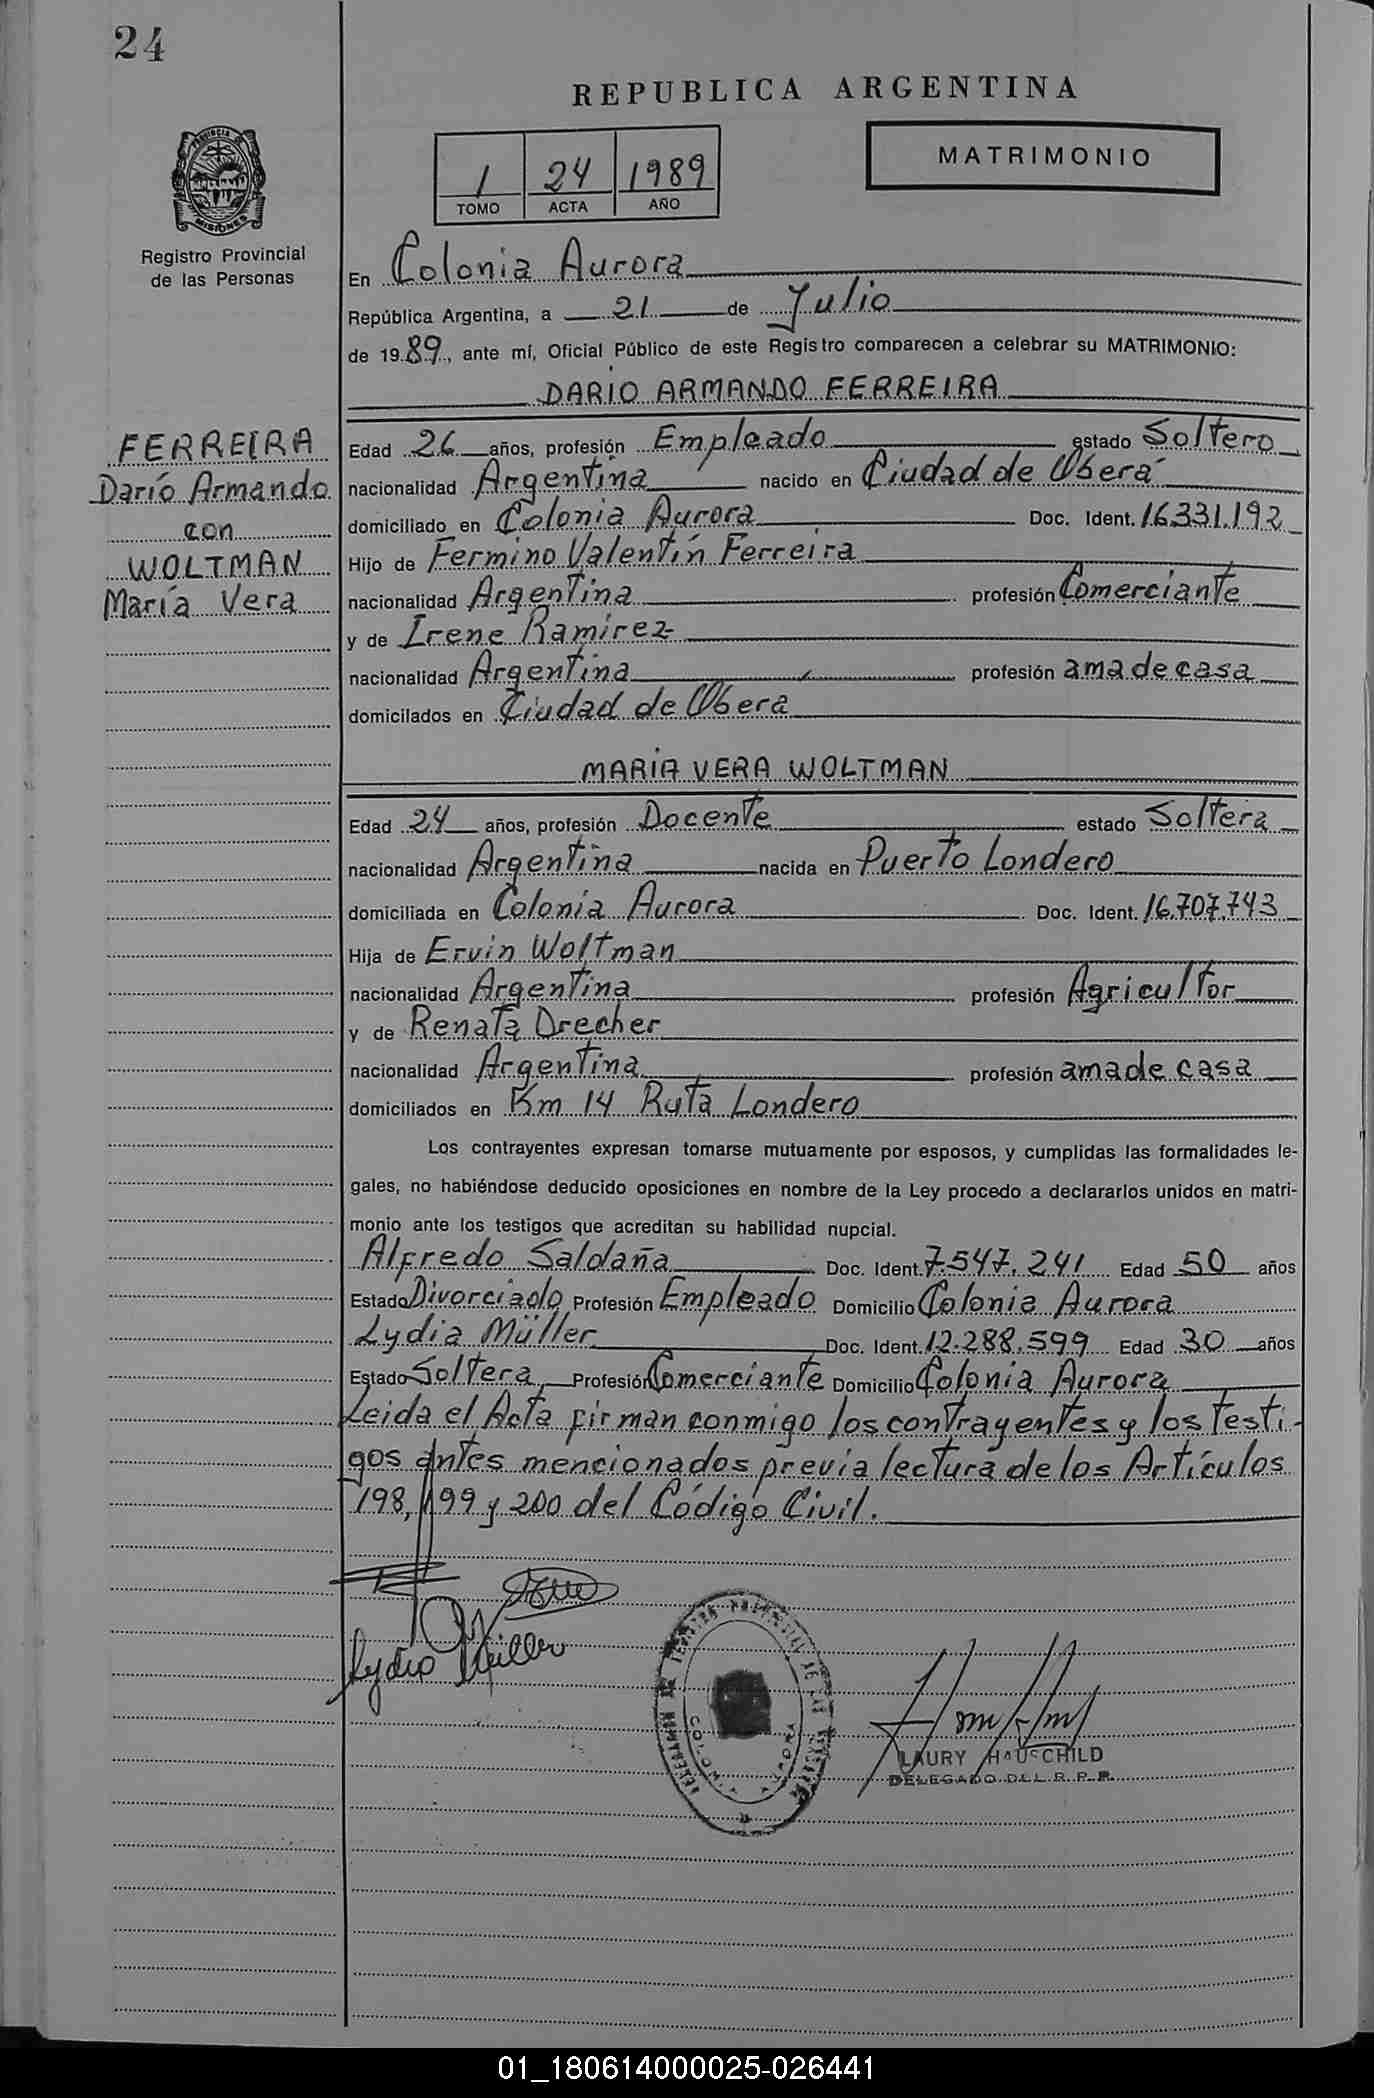 24
REPUBLICA ARGENTINA
PROVINCIA DE
MISIONES
Registro Provincial
de las Personas
1 24 1989
TOMO ACTA AÑO
MATRIMONIO
En Colonia Aurora
República Argentina, a 21 de Julio
de 1989, ante mí, Oficial Público de este Registro comparecen a celebrar su MATRIMONIO:
DARIO ARMANDO FERREIRA
FERREIRA
Darío Armando
con
WOLTMAN
María Vera
Edad 26 años, profesión Empleado estado Soltero
nacionalidad Argentina nacido en Ciudad de Oberá
domiciliado en Colonia Aurora Doc. Ident. 16.331.192
Hijo de Fermino Valentín Ferreira
nacionalidad Argentina profesión Comerciante
y de Irene Ramirez
nacionalidad Argentina profesión ama de casa
domicilados en Ciudad de Obera
MARIA VERA WOLTMAN
Edad 24 años, profesión Docente estado Soltera
nacionalidad Argentina nacida en Puerto Londero
domiciliada en Colonia Aurora Doc. Ident. 16.707.743
Hija de Ervin Woltman
nacionalidad Argentina profesión Agricultor
y de Renata Drecher
nacionalidad Argentina profesión ama de casa
domiciliados en Km 14 Ruta Londero
Los contrayentes expresan tomarse mutuamente por esposos, y cumplidas las formalidades le-
gales, no habiéndose deducido oposiciones en nombre de la Ley procedo a declararlos unidos en matri-
monio ante los testigos que acreditan su habilidad nupcial.
Alfredo Saldaña Doc. Ident. 7.547.241 Edad 50 años
Estado Divorciado Profesión Empleado Domicilio Colonia Aurora
Lydia Müller Doc. Ident. 12.288.599 Edad 30 años
Estado Soltera Profesión Comerciante Domicilio Colonia Aurora
Leida el Acta firman conmigo los contrayentes y los testi-
gos antes mencionados previa lectura de los Artículos
198, 199 y 200 del Código Civil.
Lydia Müller
COLONIA AURORA
LAURY HAUSCHILD
DELEGADO DEL R. P. P.
01_180614000025-026441